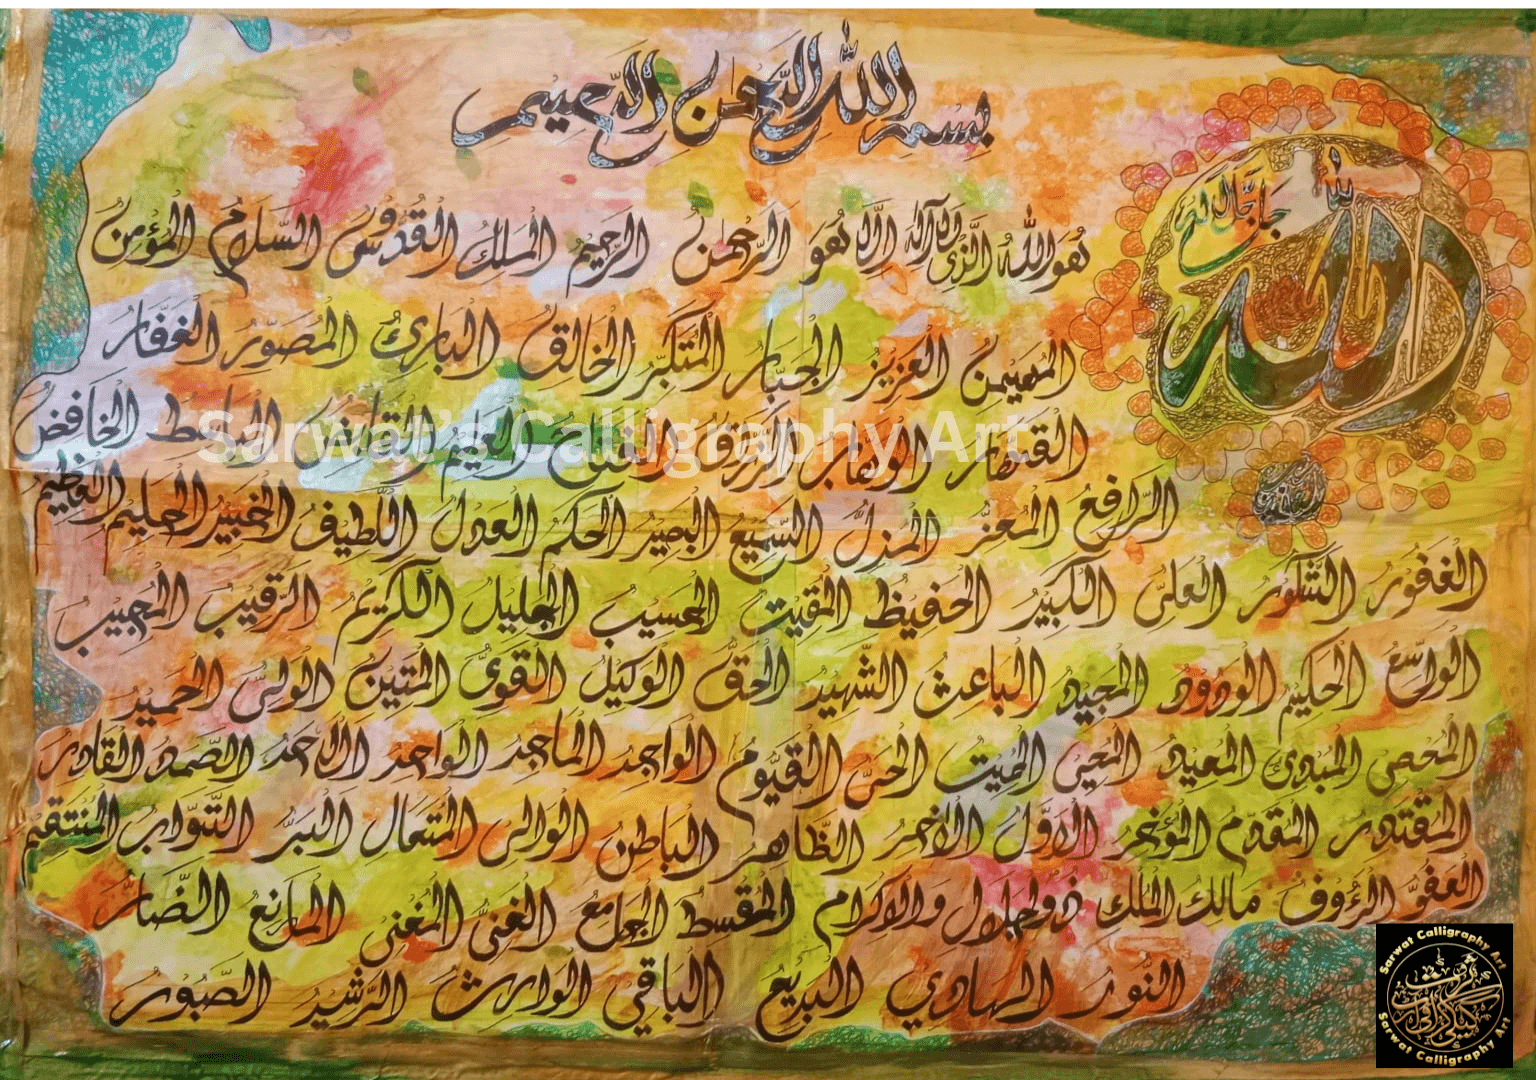 بسم الله الرحمن الرحيم
الله جل جلاله
هُوَ اللهُ الَّذِي لَا إِلٰهَ إِلَّا هُوَ الرَّحْمٰنُ الرَّحِيمُ الْمَلِكُ الْقُدُّوسُ السَّلَامُ الْمُؤْمِنُ
الْمُهَيْمِنُ الْعَزِيزُ الْجَبَّارُ الْمُتَكَبِّرُ الْخَالِقُ الْبَارِئُ الْمُصَوِّرُ الْغَفَّارُ
الْقَهَّارُ الْوَهَّابُ الرَّزَّاقُ الْفَتَّاحُ الْعَلِيمُ الْقَابِضُ الْبَاسِطُ الْخَافِضُ
الرَّافِعُ الْمُعِزُّ الْمُذِلُّ السَّمِيعُ الْبَصِيرُ الْحَكَمُ الْعَدْلُ اللَّطِيفُ الْخَبِيرُ الْحَلِيمُ الْعَظِيمُ
الْغَفُورُ الشَّكُورُ الْعَلِيُّ الْكَبِيرُ الْحَفِيظُ الْمُقِيتُ الْحَسِيبُ الْجَلِيلُ الْكَرِيمُ الرَّقِيبُ الْمُجِيبُ
الْوَاسِعُ الْحَكِيمُ الْوَدُودُ الْمَجِيدُ الْبَاعِثُ الشَّهِيدُ الْحَقُّ الْوَكِيلُ الْقَوِيُّ الْمَتِينُ الْوَلِيُّ الْحَمِيدُ
الْمُحْصِي الْمُبْدِئُ الْمُعِيدُ الْمُحْيِي الْمُمِيتُ الْحَيُّ الْقَيُّومُ الْوَاجِدُ الْمَاجِدُ الْوَاحِدُ الْأَحَدُ الصَّمَدُ الْقَادِرُ
الْمُقْتَدِرُ الْمُقَدِّمُ الْمُؤَخِّرُ الْأَوَّلُ الْآخِرُ الظَّاهِرُ الْبَاطِنُ الْوَالِي الْمُتَعَالِ الْبَرُّ التَّوَّابُ الْمُنْتَقِمُ
الْعَفُوُّ الرَّءُوفُ مَالِكُ الْمُلْكِ ذُو الْجَلَالِ وَالْإِكْرَامِ الْمُقْسِطُ الْجَامِعُ الْغَنِيُّ الْمُغْنِي الْمَانِعُ الضَّارُّ
النُّورُ الْهَادِي الْبَدِيعُ الْبَاقِي الْوَارِثُ الرَّشِيدُ الصَّبُورُ
Sarwat's Calligraphy Art
Sarwat Calligraphy Art
Sarwat Calligraphy Art